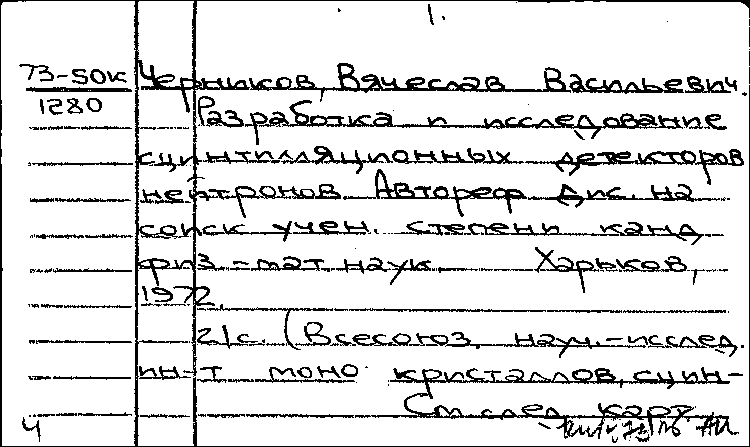 1.
73-50к Черников, Вячеслав Васильевич.
1280 Разработка и исследование
сцинтилляционных детекторов
нейтронов. Автореф. Дис. на
соиск учен. степени канд
физ.-мат. наук. Харьков,
1972.
21с. (Всесоюз. науч.-исслед.
ин-т моно кристаллов, сцин-
См. след. карт.
Ч